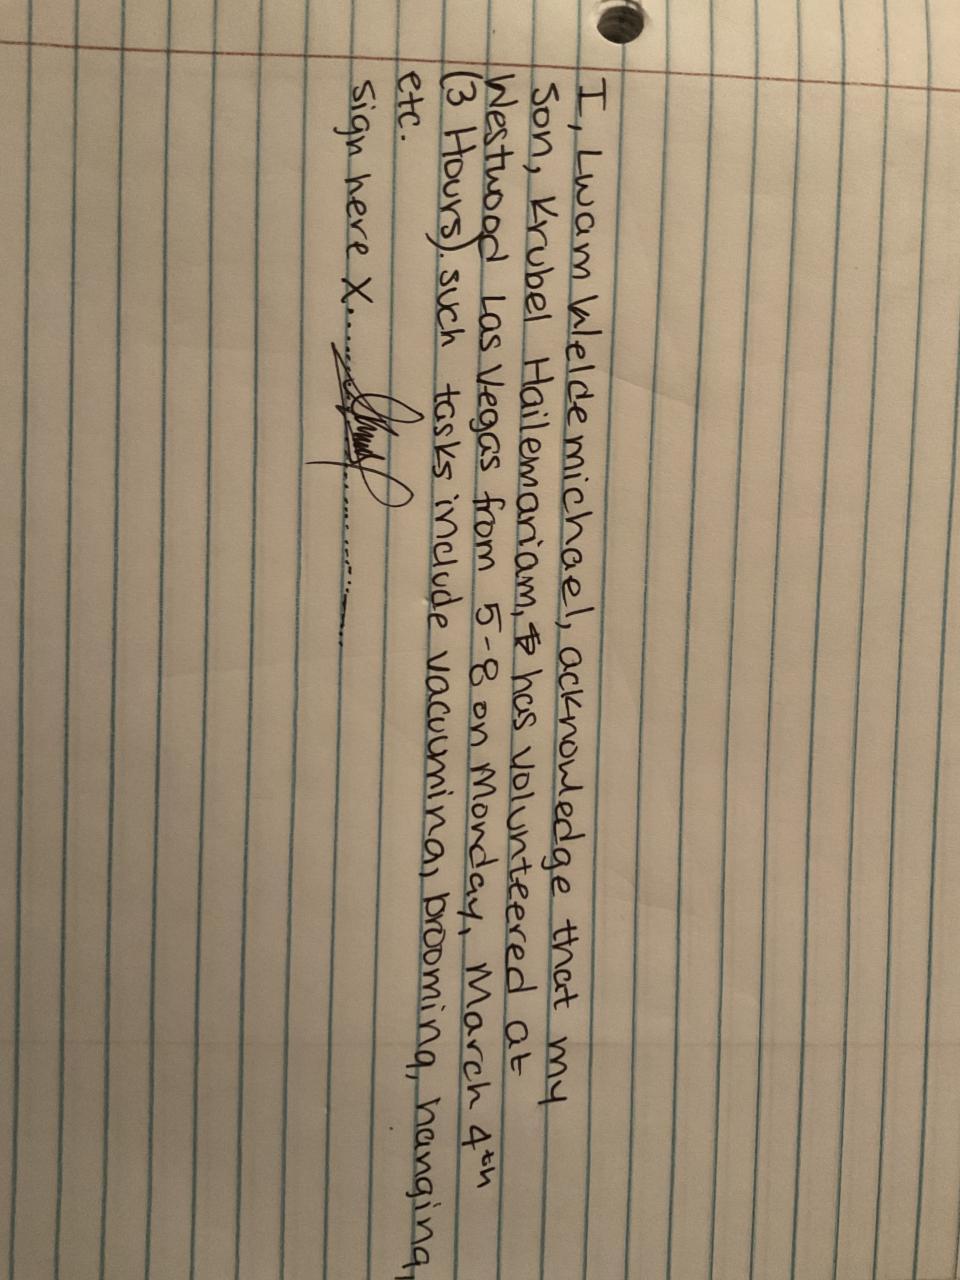 I, Lwam Weldemichael, acknowledge that my
son, Krubel Hailemariam, has volunteered at
Westwood Las Vegas from 5-8 on Monday, March 4th
(3 Hours). such tasks include vacuuming, brooming, hanging,
etc.
sign here X....................